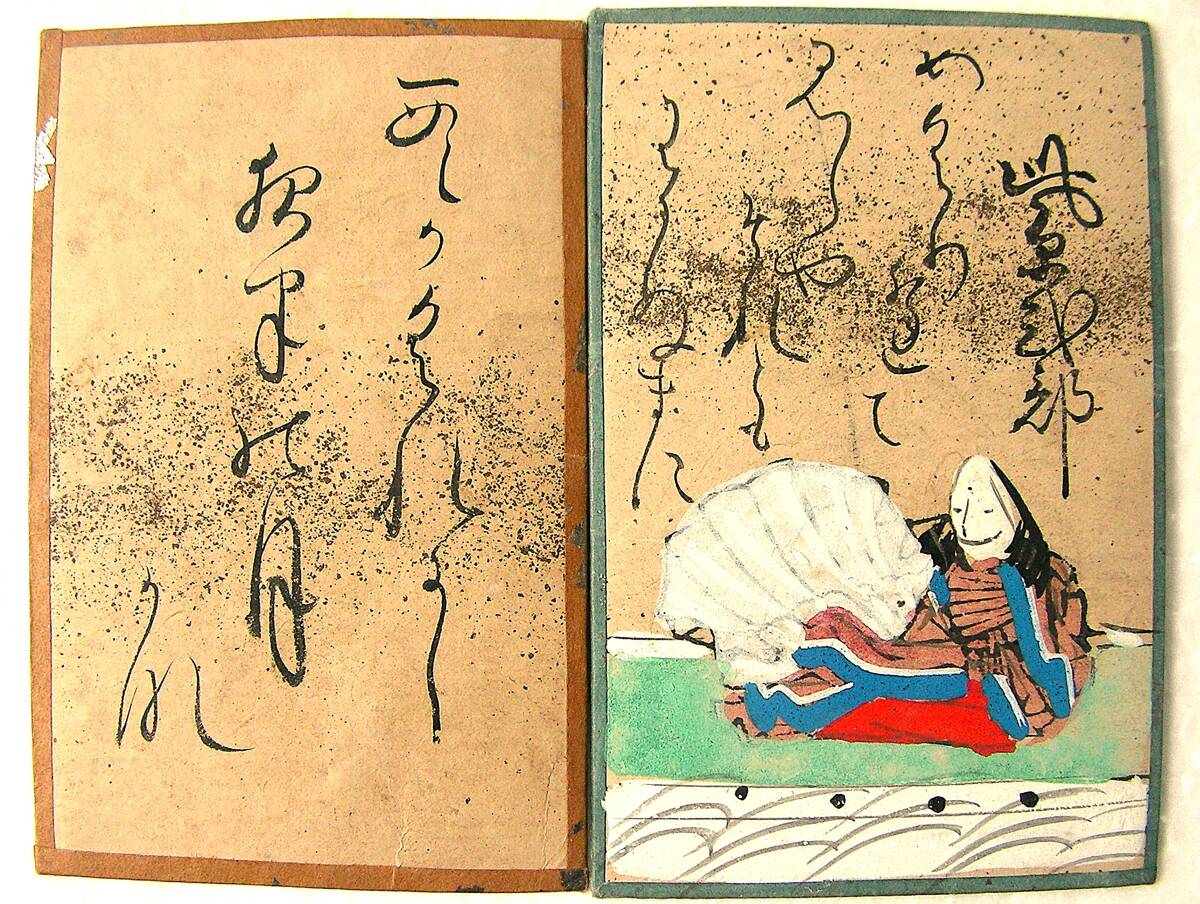 紫式部
めくり逢て
見しや
それとも
わかぬまに
雲かくれにし
夜半の月
かな